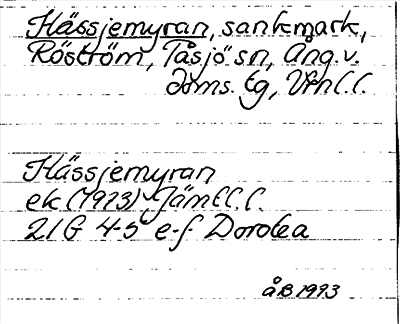 Hässjemyran, sankmark,
Röström, Tåsjö sn, Ång. v.
doms. tg, Vbn l.l.
Hässjemyran
ek (1973) Jämtl. l.
21G 4-5 e-f Dorotea
åB 1973